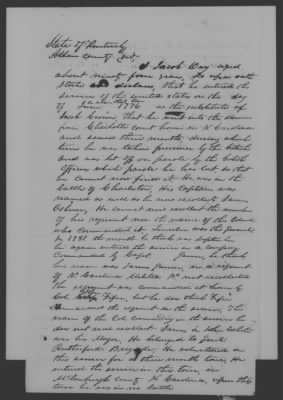 State of Kentucky
Allen County Sct.
I Jacob Day aged
about ninety four years, do upon oath
state and declare, that he entered the
service of the united states on the day
of June 1776 as the substitute of
Jacob that he went into the service
from Charlotte court house in N Carolina
and served three months during which
time he was taken prisoner by the british
and was let off on parole by the british
officer which parole he has lost so that
he cannot now find it. He was in the
battle of Charleston, His Captain was
named as well as he now recollects James
Osborn, He cannot now recollect the number
of his regiment nor the name of the Colonel
who commanded it,
in 1781 the month he thinks was
he again entered the service in a company
Commanded by Capt. James, he thinks
his name was James James, in a regiment
of N. Carolina Militia No not recollected
The regiment was commanded at by
Col. but he does think
the regiment in the service, The
name of the Col commanding in the service he
does not now recollect James or John White
was his Major, He belonged to Genl
Rutherford Brigade, He volunteered in
this service for a three month tour, He
entered the service in this tour, in
Mclenburgh County N Carolina, upon this
tour he was in no battle